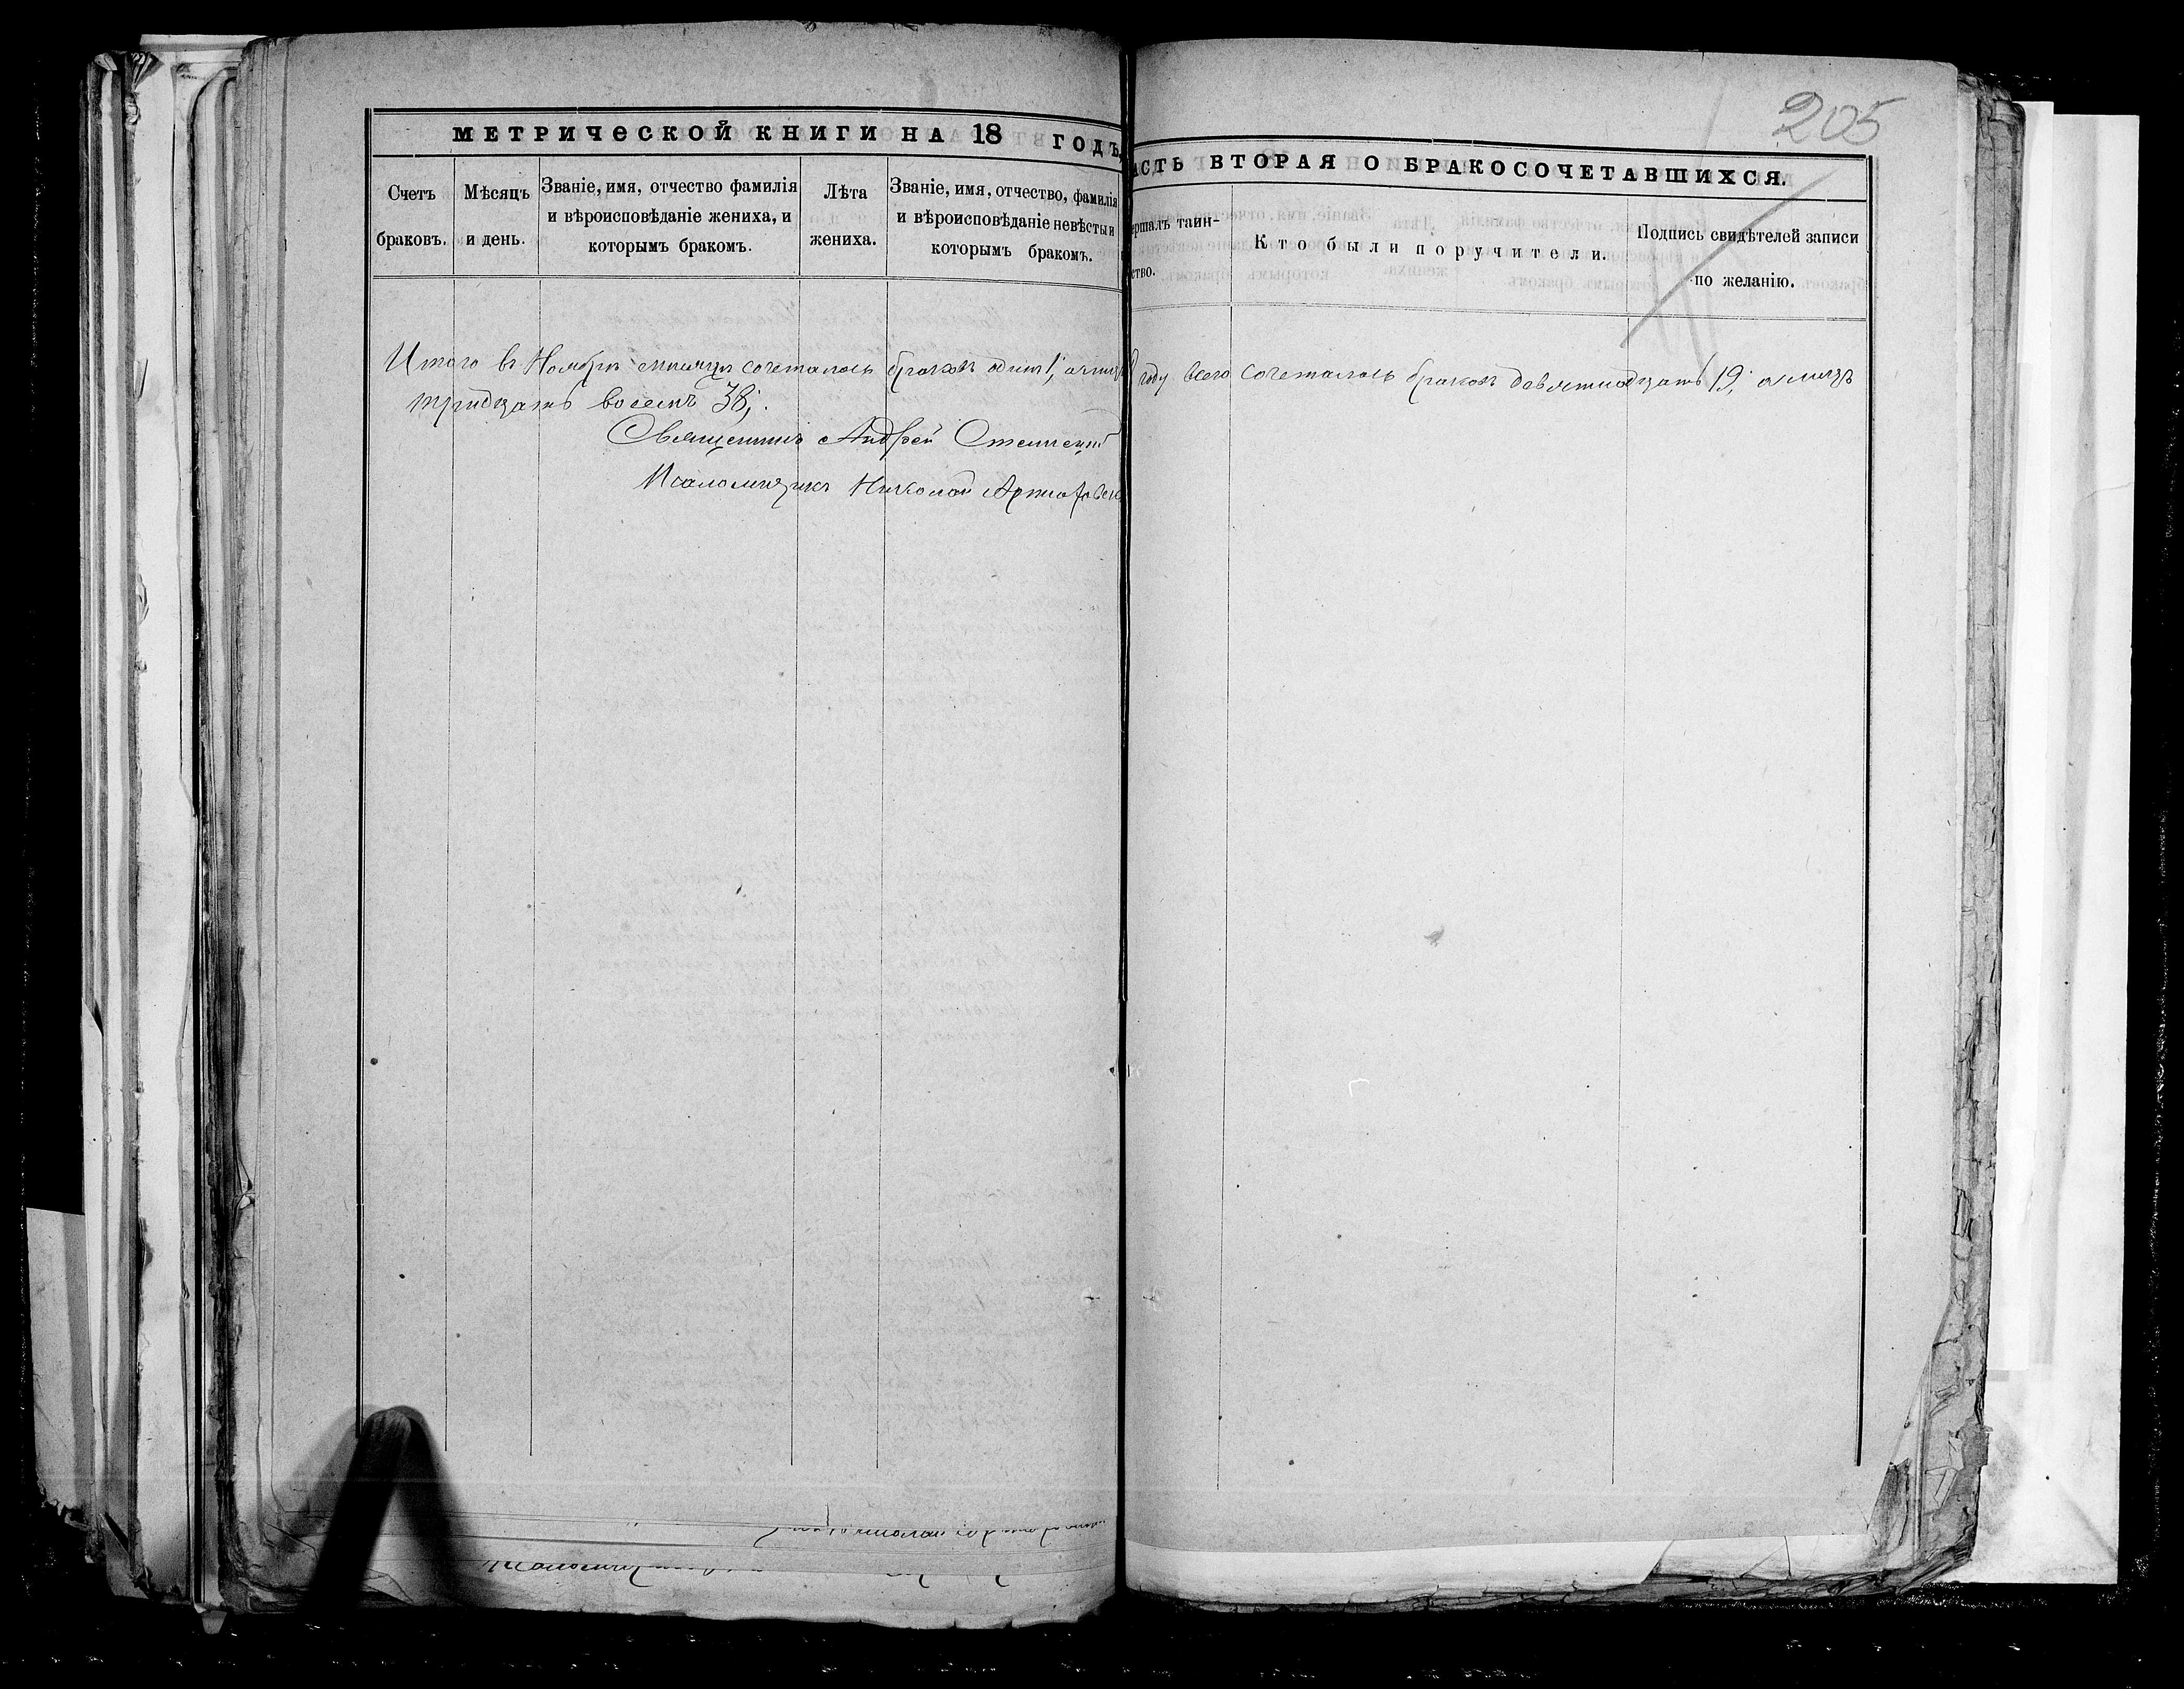 205
МЕТРИЧЕСКОЙ КНИГИ НА 18 ГОДЪ,
АСТЬ ВТОРАЯ О БРАКОСОЧЕТАВШИХСЯ.
Счетъ браковъ.
Мѣсяцъ и день.
Званіе, имя, отчество фамилія
и вѣроисповѣданіе жениха, и
которымъ бракомъ.
Лѣта жениха.
Званіе, имя, отчество, фамилія
и вѣроисповѣданіе невѣсты и
которымъ бракомъ.
ершалъ таин-
ство.
Кто были поручители.
Подпись свидѣтелей записи
по желанію.
Итого въ Ноябрѣ мѣсяцѣ сочеталось браковъ одинъ 1, году всего сочеталось браковъ девятнадцать 19; а лицъ
тридцать восемь 38;.
Священникъ Андрей
Псаломщикъ Николай